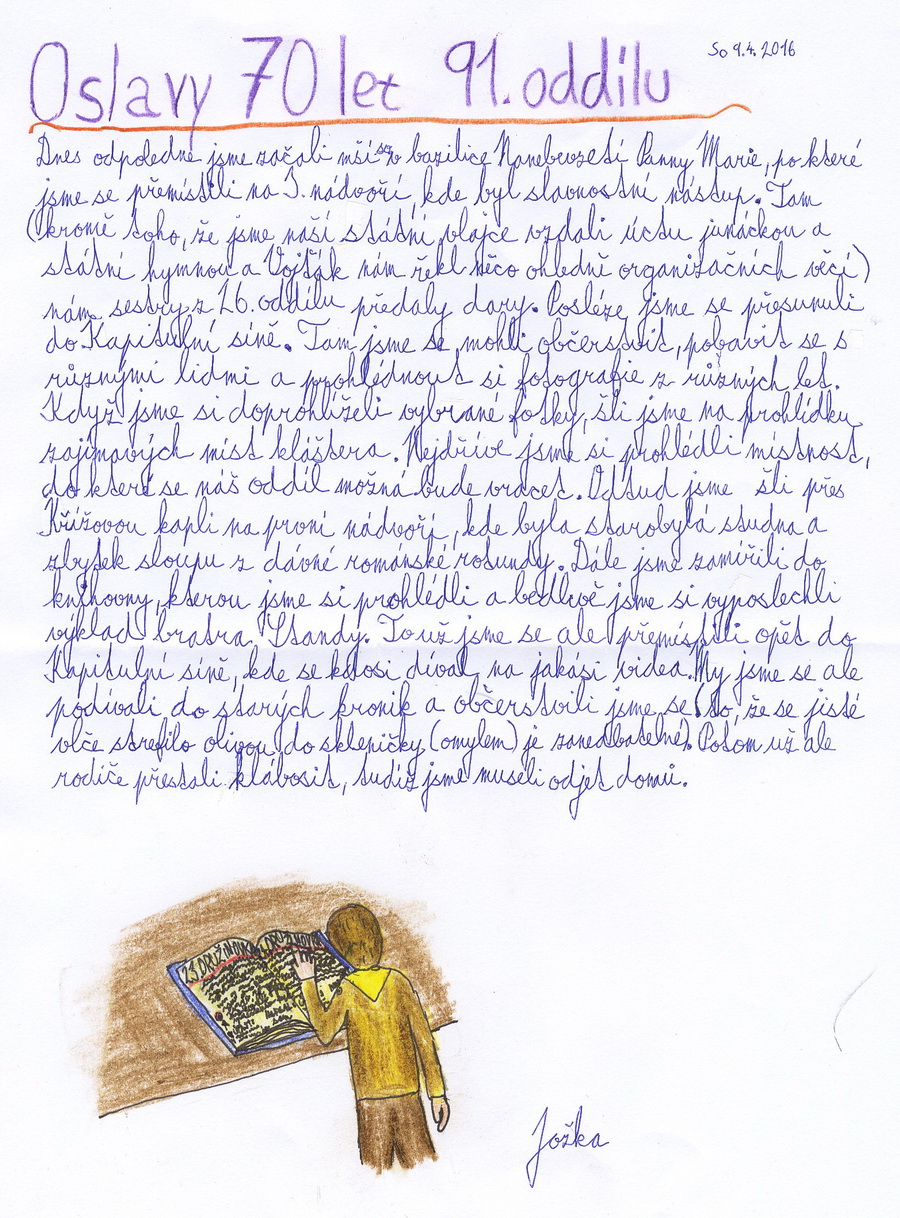 So 9.4. 2016
Oslavy 70 let 91. oddílu
Dnes odpoledne jsme začali mší sv. v bazilice Nanebevzetí Panny Marie, po které
jsme se přemístili na 3. nádvoří, kde byl slavnostní nástup. Tam
(kromě toho, že jsme naší státní vlajce vzdali úctu junáckou a
státní hymnou a Vojťák nám řekl něco ohledně organizačních věcí)
nám sestry z 26. oddílu předaly dary. Posléze jsme se přesunuli
do Kapitulní síně. Tam jsme se mohli občerstvit, pobavit se s
různými lidmi a prohlédnout si fotografie z různých let.
Když jsme si doprohlíželi vybrané fotky, šli jsme na prohlídku
zajímavých míst kláštera. Nejdříve jsme si prohlédli místnost,
do které se náš oddíl možná bude vracet. Odtud jsme šli přes
Křížovou kapli na první nádvoří, kde byla starobylá studna a
zbytek sloupu z dávné románské rotundy. Dále jsme zamířili do
knihovny, kterou jsme si prohlédli a bedlivě jsme si vyposlechli
výklad bratra Standy. To už jsme se ale přemístili opět do
Kapitulní síně, kde se kdosi díval na jakási videa. My jsme se ale
podívali do starých kronik a občerstvili jsme se (to, že se jisté
vlče strefilo olivou do skleničky (omylem) je zanedbatelné). Potom už ale
rodiče přestali klábosit, tudíž jsme museli odjet domů.
DRUŽINOVKA
Jožka